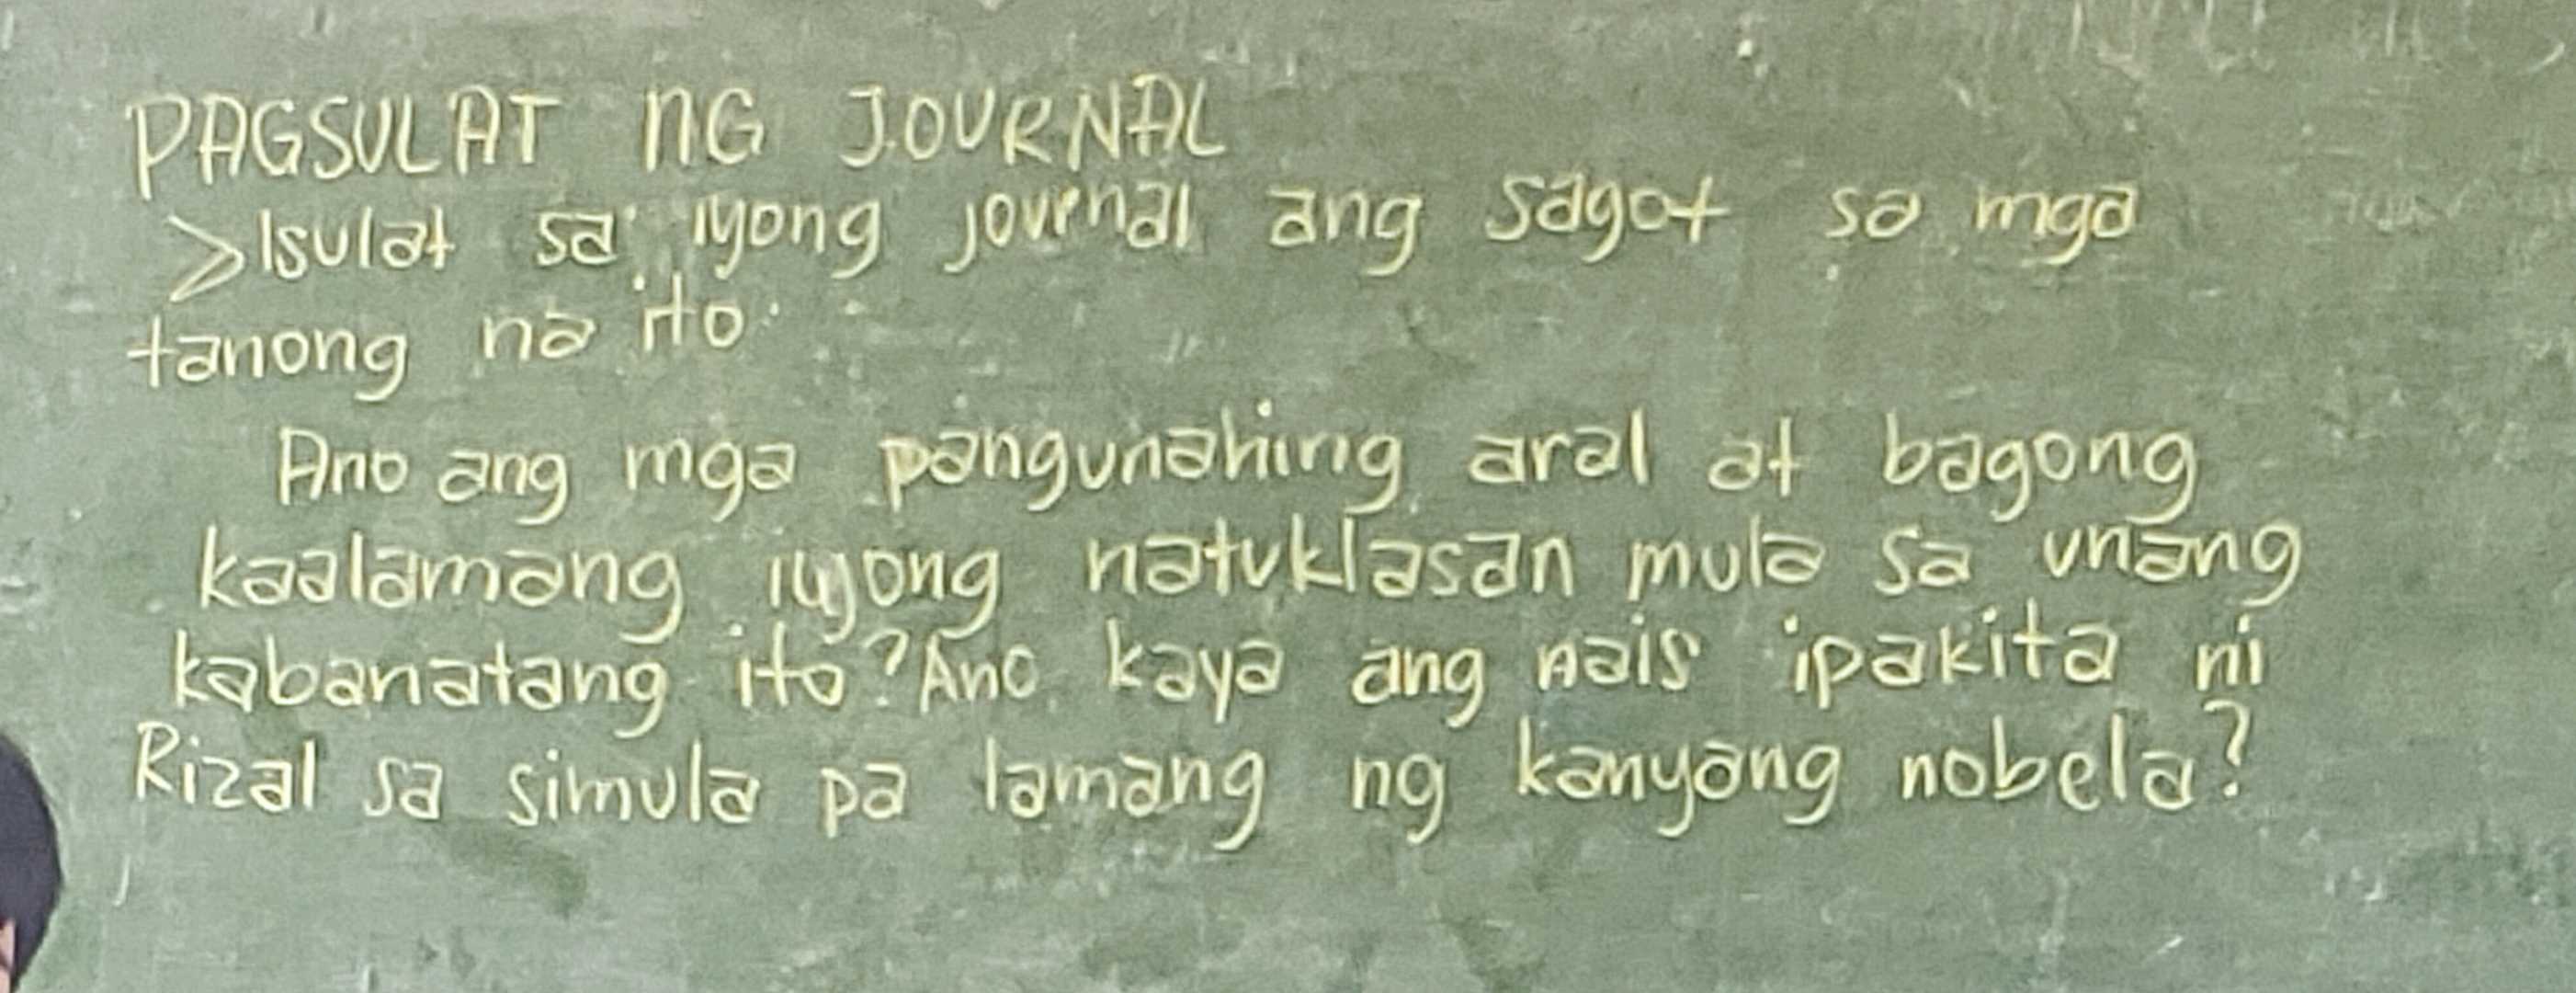 PAGSULAT NG JOURNAL
>Isulat sa iyong journal ang sagot sa mga
tanong na ito
Ano ang mga pangunahing aral at bagong
kaalamang iyong natuklasan mula sa unang
kabanatang ito? Ano kaya ang nais ipakita ni
Rizal sa simula pa lamang ng kanyang nobela?